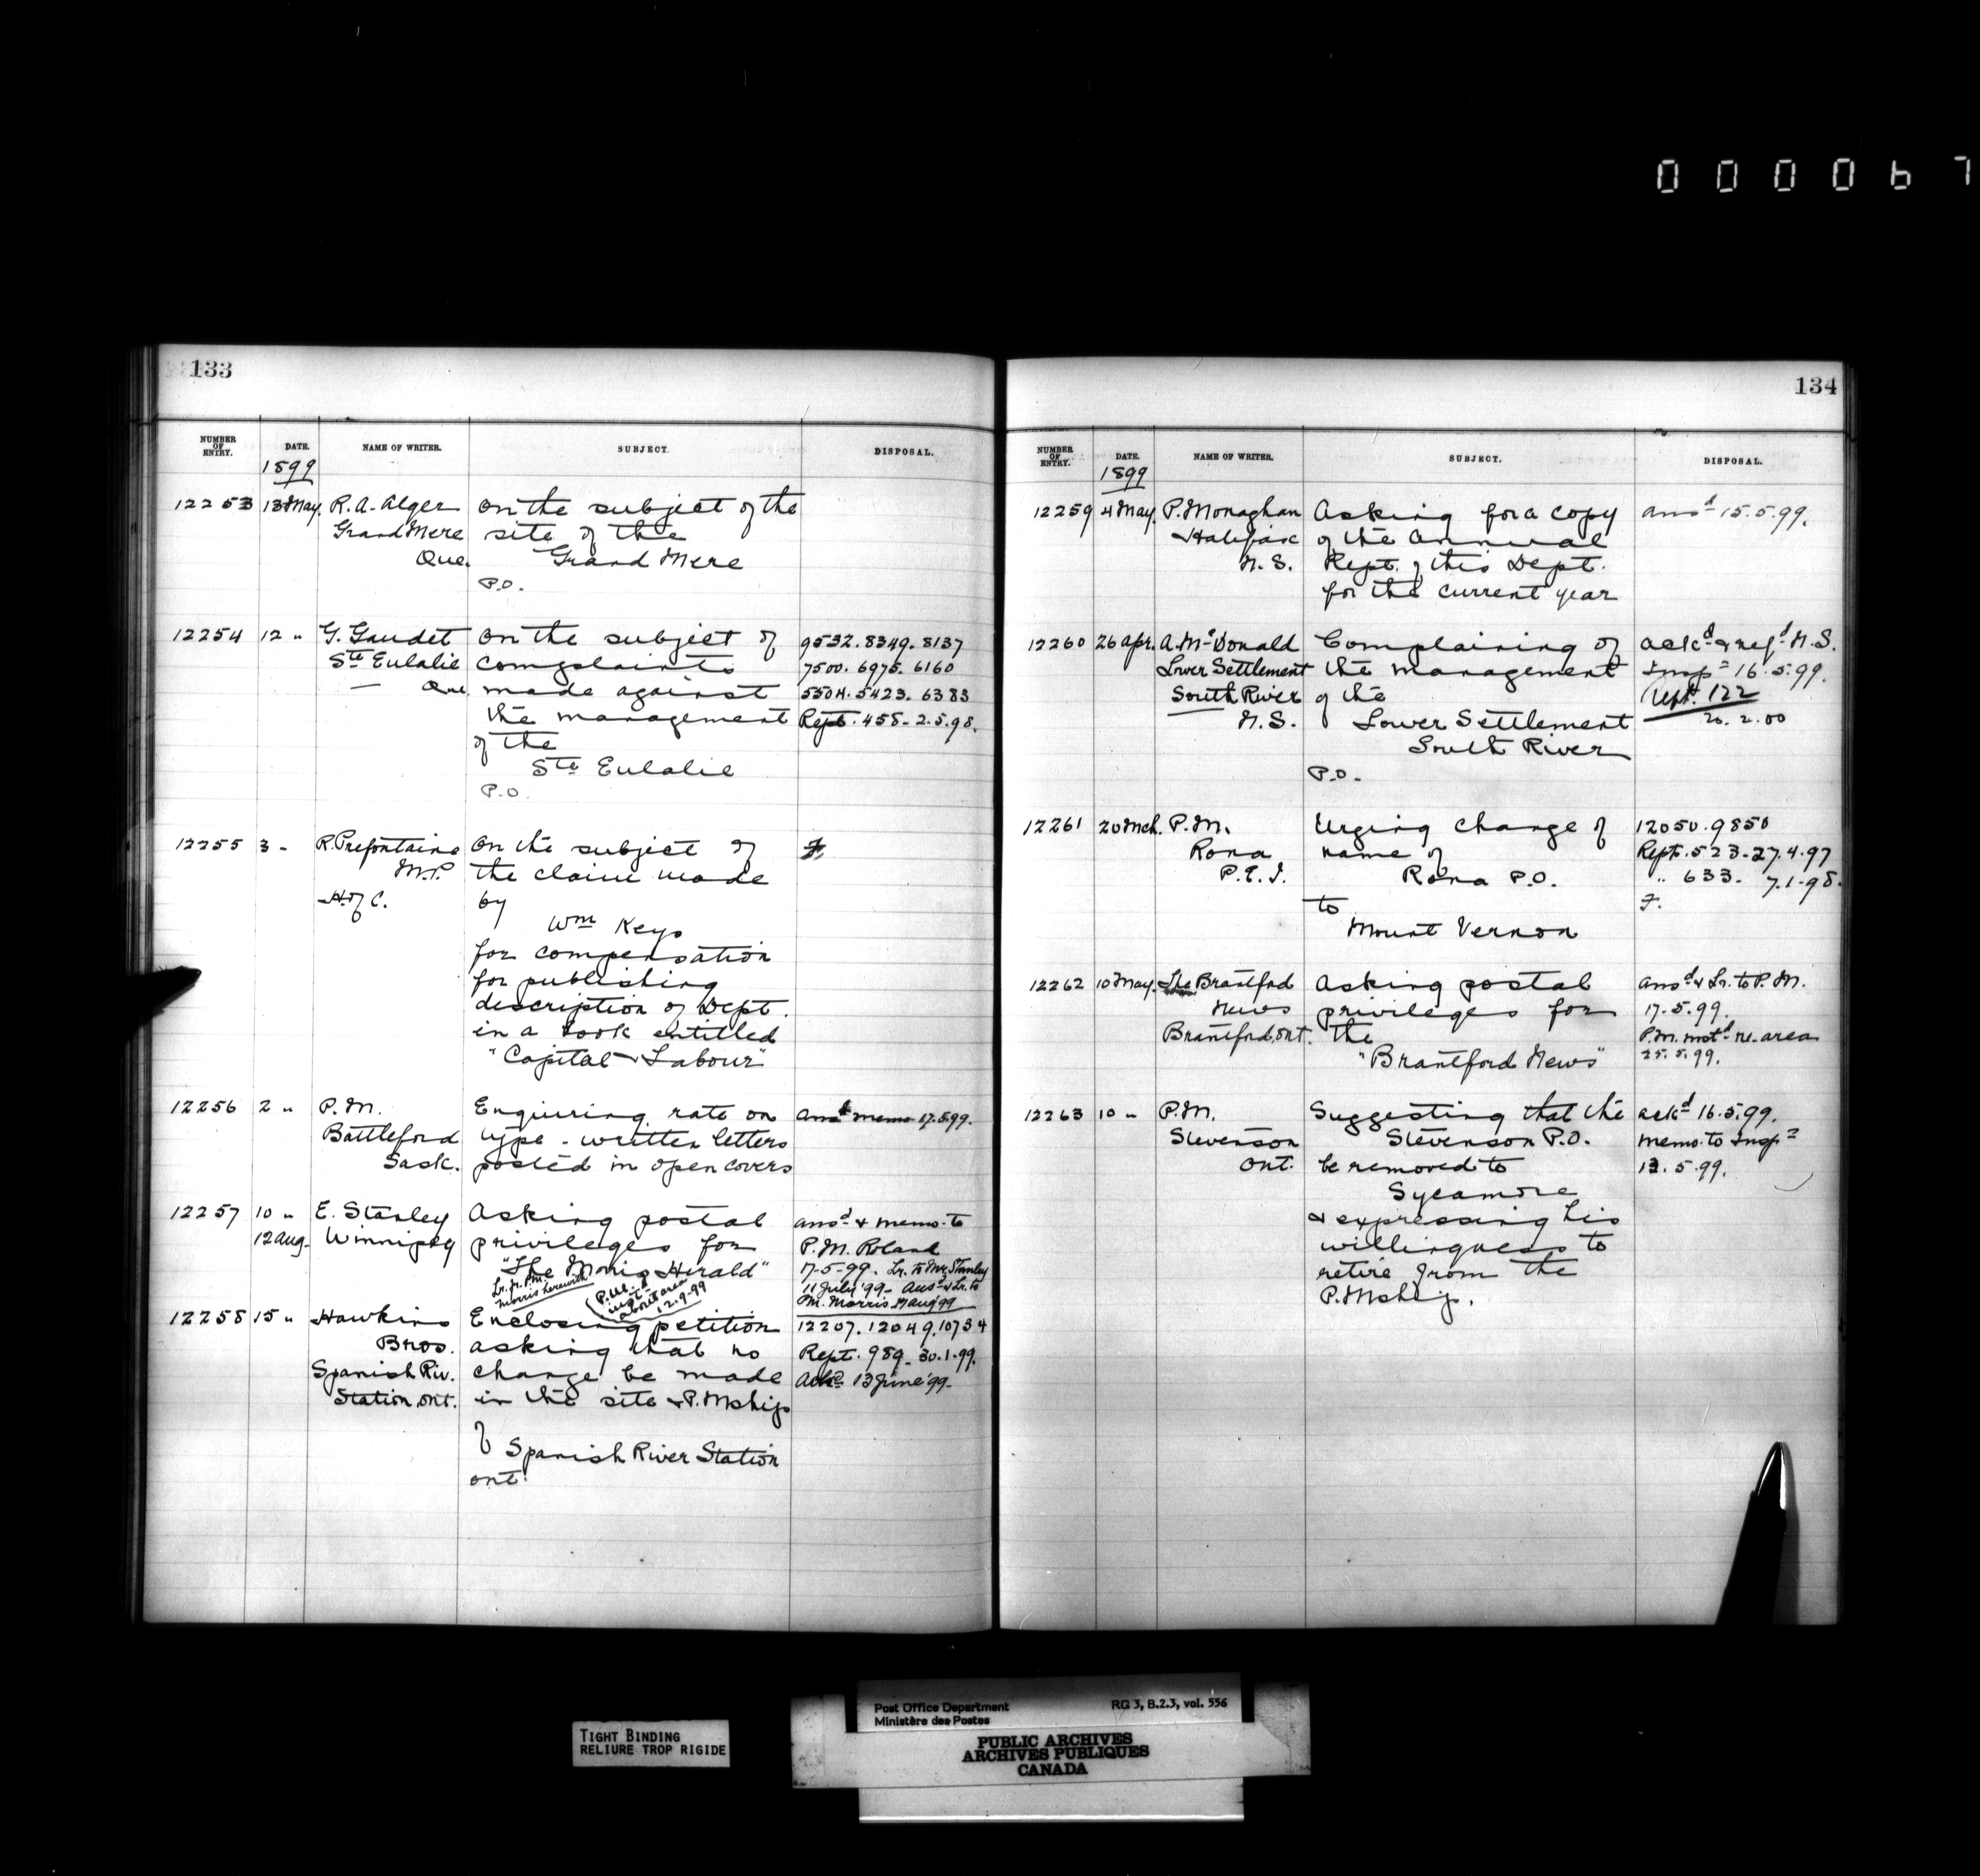 0 0 0 0 6 7
133
NUMBER OF ENTRY. DATE. NAME OF WRITER. SUBJECT. DISPOSAL.
1899
12253 13 May. R. A. Alger On the subject of the
Grand Mere site of the
Que. Grand Mere
P.O.
12254 12 " G. Gaudet On the subject of 9532. 8349. 8137
Ste Eulalie complaints 7500. 6975. 6160
Que. made against 5504. 5423. 6383
the management Rept. 458 - 2.5.98.
of the
Ste Eulalie
P.O.
12255 3 " R. Prefontaine On the subject of F.
M.P. the claim made
H. of C. by
Wm Keys
for compensation
for publishing
description of Dept.
in a book entitled
"Capital & Labour"
12256 2 " P. M. Enquiring rate on Ansd memo 17.5.99.
Battleford type-written letters
Sask. posted in open covers
12257 10 " E. Stanley Asking postal ansd & memo. to
12 Aug. Winnipeg privileges for P. M. Roland
"The Morris Herald" 17-5-99. Lr. to Mr. Stanley
Lr. fr. P.M. Morris herewith 11 July '99 - Ansd & Lr. to
about area 12-9-99 P.M. Morris 17 Aug 99
12258 15 " Hawkins Enclosing petition 12207. 12049. 10734
Bros. asking that no Rept. 989 - 30.1.99.
Spanish Riv. change be made Ackd 13 June '99.
Station Ont. in the site & P. Mship
of
Spanish River Station
Ont.
134
NUMBER OF ENTRY. DATE. NAME OF WRITER. SUBJECT. DISPOSAL.
1899
12259 4 May. P. Monaghan Asking for a copy ansd 15.5.99.
Halifax of the Annual
N. S. Rept. of this Dept.
for the current year
12260 26 Apr. A. McDonald Complaining of ackd & refd N.S.
Lower Settlement the management Inspr 16.5.99.
South River of the Rept. 122
N.S. Lower Settlement 20.2.00
South River
P.O.
12261 20 Mch. P. M. Urging change of 12050. 9850
Rona name of Rept. 523 - 27.4.97
P. E. I. Rona P.O. " 633. 7.1.98.
to F.
Mount Vernon
12262 10 May. The Brantford Asking postal ansd & Lr. to P. M.
News privileges for 17.5.99.
Brantford, Ont. the P.M. instd re area
"Brantford News" 25.5.99.
12263 10 " P.M. Suggesting that the ackd 16.5.99.
Stevenson Stevenson P.O. memo. to Inspr
Ont. be removed to 12.5.99.
Sycamore
& expressing his
willingness to
retire from the
P. Mship.
Post Office Department RG 3, B.2.3, vol. 556
Ministère des Postes
TIGHT BINDING
RELIURE TROP RIGIDE
PUBLIC ARCHIVES
ARCHIVES PUBLIQUES
CANADA